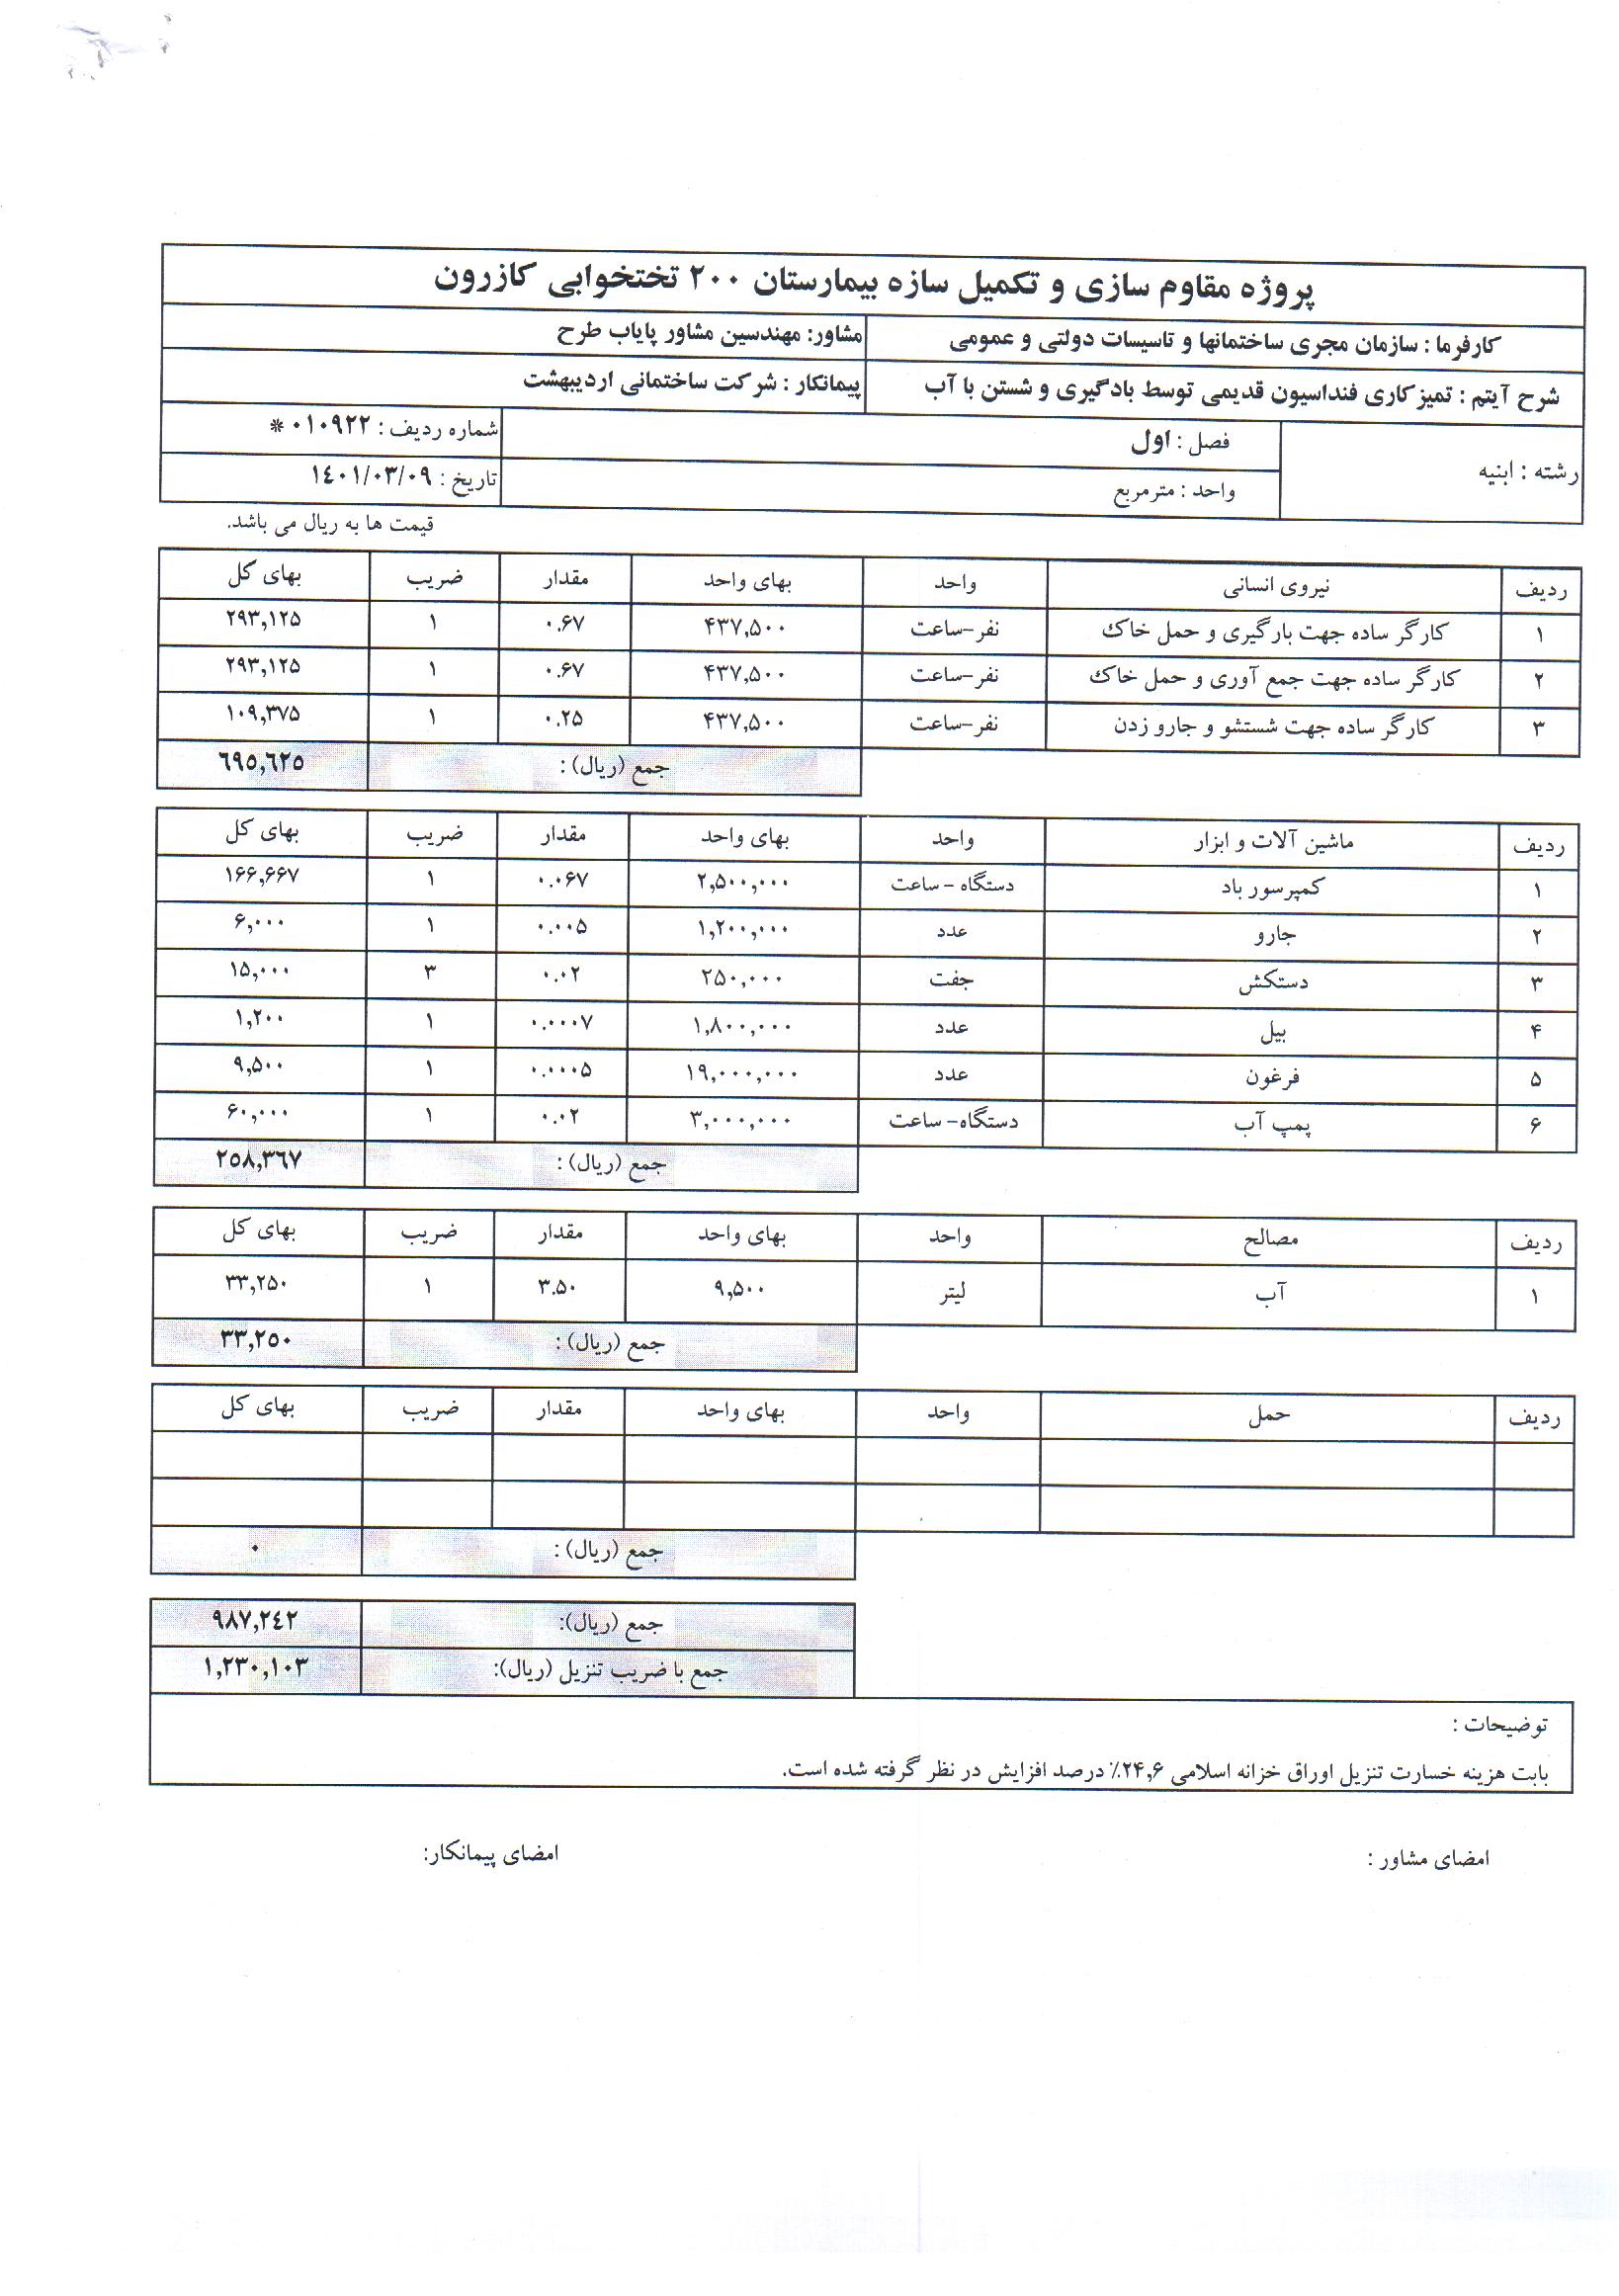 پروژه مقاوم سازی و تکمیل سازه بیمارستان ۲۰۰ تختخوابی کازرون
کارفرما : سازمان مجری ساختمانها و تاسیسات دولتی و عمومی مشاور: مهندسین مشاور پایاب طرح
شرح آیتم : تمیزکاری فنداسیون قدیمی توسط بادگیری و شستن با آب پیمانکار : شرکت ساختمانی اردیبهشت
رشته : ابنیه فصل : اول شماره ردیف : ۰۱۰۹۲۲ *
واحد : مترمربع تاریخ : ۱٤۰۱/۰۳/۰۹
قیمت ها به ریال می باشد.
ردیف نیروی انسانی واحد بهای واحد مقدار ضریب بهای کل
۱ کارگر ساده جهت بارگیری و حمل خاک نفر-ساعت ۴۳۷,۵۰۰ ۰.۶۷ ۱ ۲۹۳,۱۲۵
۲ کارگر ساده جهت جمع آوری و حمل خاک نفر-ساعت ۴۳۷,۵۰۰ ۰.۶۷ ۱ ۲۹۳,۱۲۵
۳ کارگر ساده جهت شستشو و جارو زدن نفر-ساعت ۴۳۷,۵۰۰ ۰.۲۵ ۱ ۱۰۹,۳۷۵
جمع (ریال): ٦۹٥,٦۲٥
ردیف ماشین آلات و ابزار واحد بهای واحد مقدار ضریب بهای کل
۱ کمپرسور باد دستگاه - ساعت ۲,۵۰۰,۰۰۰ ۰.۰۶۷ ۱ ۱۶۶,۶۶۷
۲ جارو عدد ۱,۲۰۰,۰۰۰ ۰.۰۰۵ ۱ ۶,۰۰۰
۳ دستکش جفت ۲۵۰,۰۰۰ ۰.۰۲ ۳ ۱۵,۰۰۰
۴ بیل عدد ۱,۸۰۰,۰۰۰ ۰.۰۰۰۷ ۱ ۱,۲۰۰
۵ فرغون عدد ۱۹,۰۰۰,۰۰۰ ۰.۰۰۰۵ ۱ ۹,۵۰۰
۶ پمپ آب دستگاه- ساعت ۳,۰۰۰,۰۰۰ ۰.۰۲ ۱ ۶۰,۰۰۰
جمع (ریال): ۲٥۸,۳٦۷
ردیف مصالح واحد بهای واحد مقدار ضریب بهای کل
۱ آب لیتر ۹,۵۰۰ ۳.۵۰ ۱ ۳۳,۲۵۰
جمع (ریال): ۳۳,۲٥۰
ردیف حمل واحد بهای واحد مقدار ضریب بهای کل
جمع (ریال): ۰
جمع (ریال): ۹۸۷,۲٤۲
جمع با ضریب تنزیل (ریال): ۱,۲۳۰,۱۰۳
توضیحات :
بابت هزینه خسارت تنزیل اوراق خزانه اسلامی ۲۴,۶٪ درصد افزایش در نظر گرفته شده است.
امضای مشاور : امضای پیمانکار: